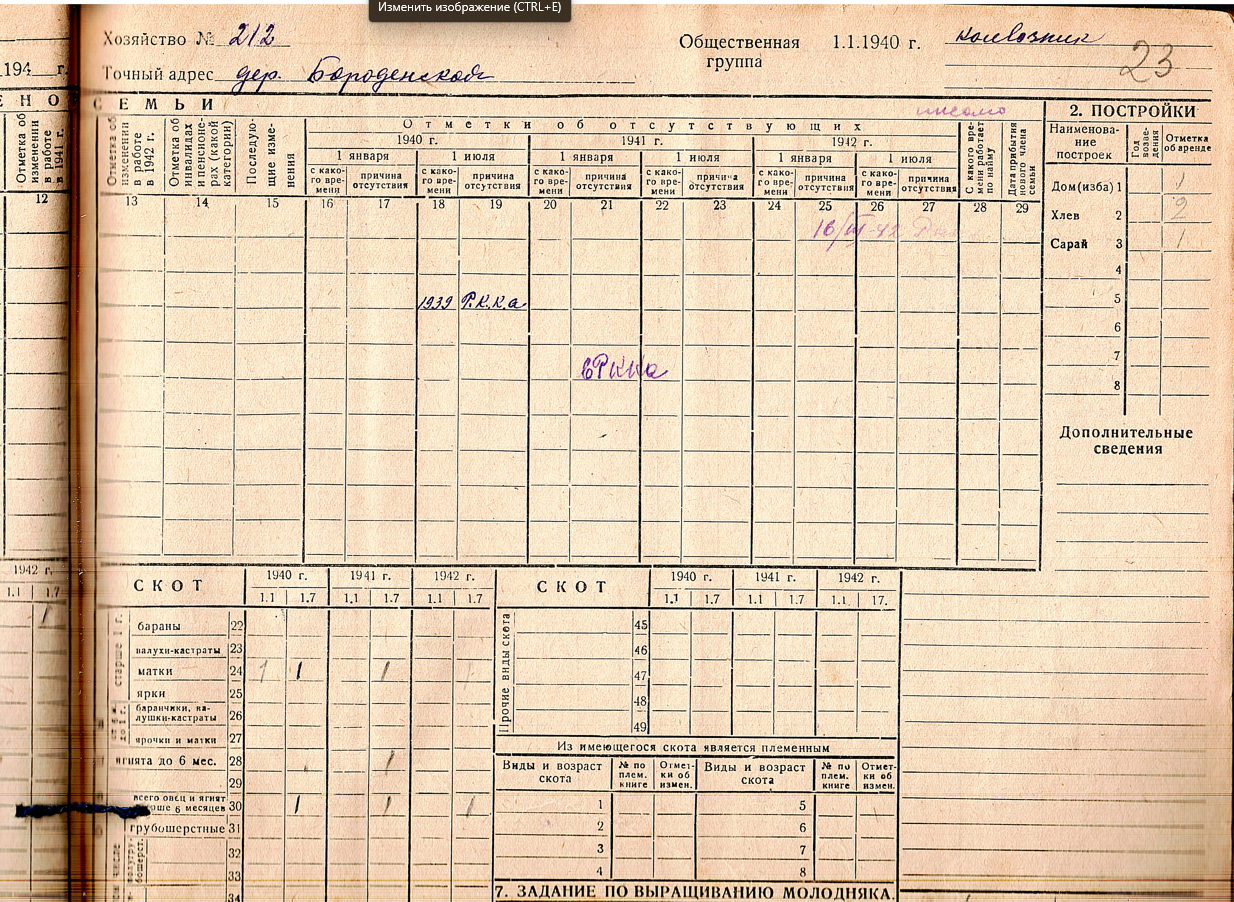 Изменить изображение (CTRL+E)
Хозяйство № 212
Общественная группа 1.1.1940 г. колвозник
23
194 г.
Точный адрес дер. Бороденской
ЕНО
СЕМЬИ
письмо
2. ПОСТРОЙКИ
Отметка об изменении в работе в 1941 г.
Отметка об изменении в работе в 1942 г.
Отметка об инвалидах и пенсионерах (какой категории)
Последующие изменения
Отметки об отсутствующих
1940 г. 1941 г. 1942 г.
1 января 1 июля 1 января 1 июля 1 января 1 июля
с какого времени причина отсутствия с какого времени причина отсутствия с какого времени причина отсутствия с какого времени причина отсутствия с какого времени причина отсутствия с какого времени причина отсутствия
С какого времени работает по найму
Дата прибытия нового члена семьи
Наименование построек
Год возведения
Отметка об аренде
12 13 14 15 16 17 18 19 20 21 22 23 24 25 26 27 28 29
Дом(изба) 1 1
Хлев 2 2
Сарай 3 1
4
5
6
7
8
16/VI-42
1939 Р.К.К.а
в РККа
Дополнительные сведения
1942 г.
1.1 1.7
1
СКОТ 1940 г. 1941 г. 1942 г.
1.1 1.7 1.1 1.7 1.1 1.7
старше 1 г.
бараны 22
валухи-кастраты 23
матки 24 1 1 1 1
ярки 25
до 1 г.
баранчики, валушки-кастраты 26
ярочки и матки 27
ягнята до 6 мес. 28 1
29
всего овец и ягнят
старше 6 месяцев 30 1 1 1
грубошерстные 31
32
33
34
СКОТ 1940 г. 1941 г. 1942 г.
1.1 1.7 1.1 1.7 1.1. 17.
Прочие виды скота
45
46
47
48
49
Из имеющегося скота является племенным
Виды и возраст скота № по плем. книге Отметки об измен. Виды и возраст скота № по плем. книге Отметки об измен.
1 5
2 6
3 7
4 8
7. ЗАДАНИЕ ПО ВЫРАЩИВАНИЮ МОЛОДНЯКА.